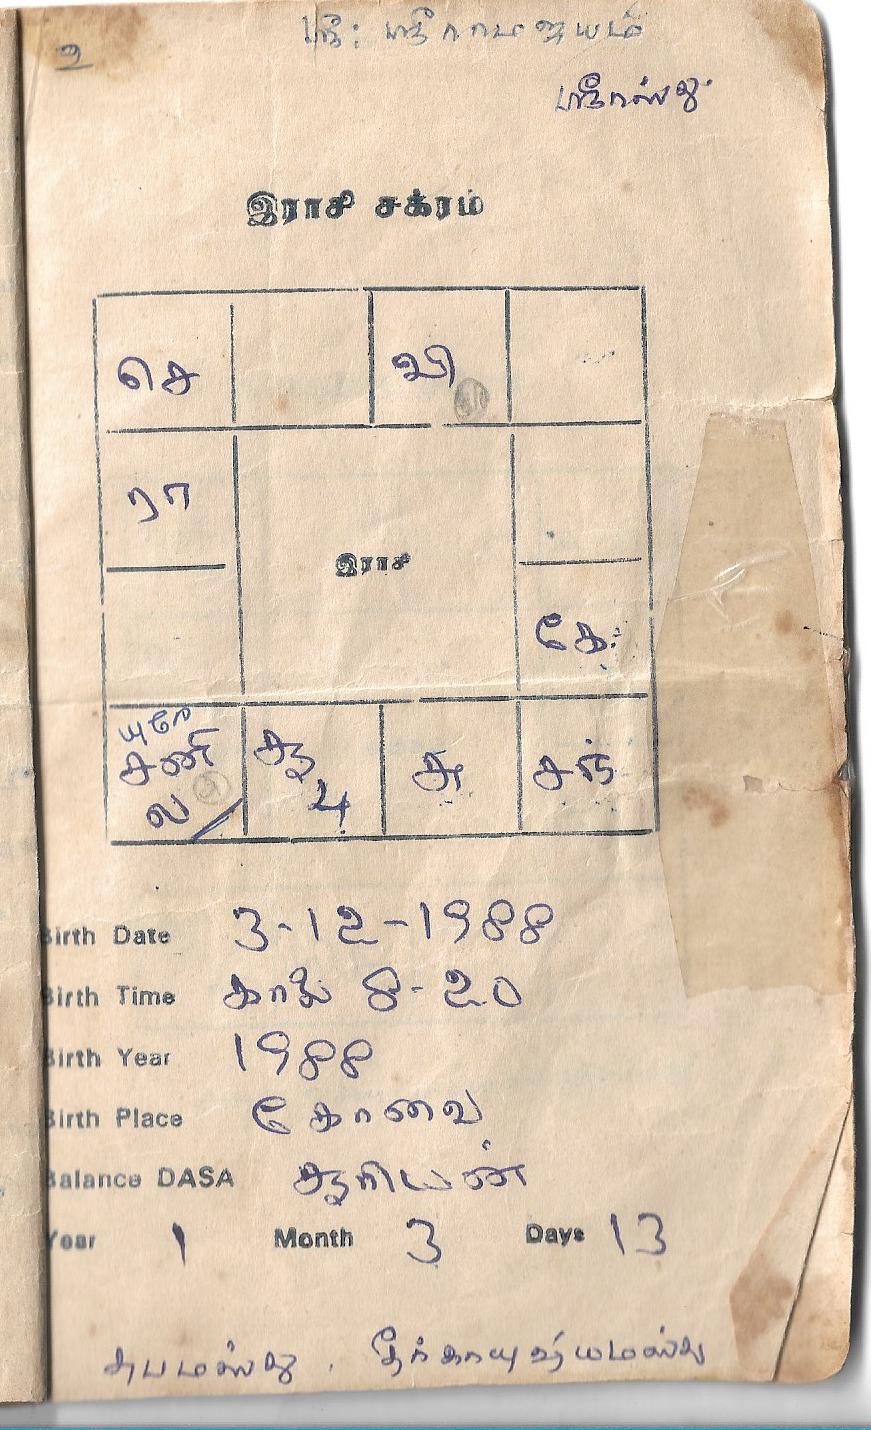 உ
ஸ்ரீ: ஸ்ரீராமஜயம்
ஸ்ரீரஸ்து
இராசி சக்ரம்
செ வி
ரா
இராசி
கே
சனி சூ சு சந்
ல பு
Birth Date 3-12-1988
Birth Time காலை 8-20
Birth Year 1988
Birth Place கோவை
Balance DASA சூரியன்
Year 1 Month 3 Days 13
சுபமஸ்து . தீர்காயுஷ்யமஸ்து